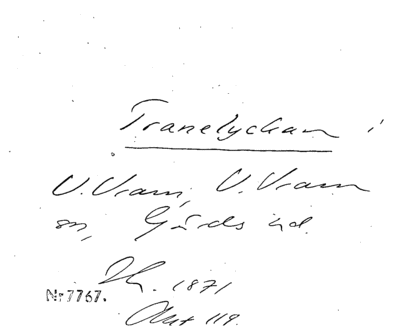 Tranelyckan i
V. Vram, V. Vram
sn, Gärds hd.
Sk. 1871
Nr 7767.
Akt 119.